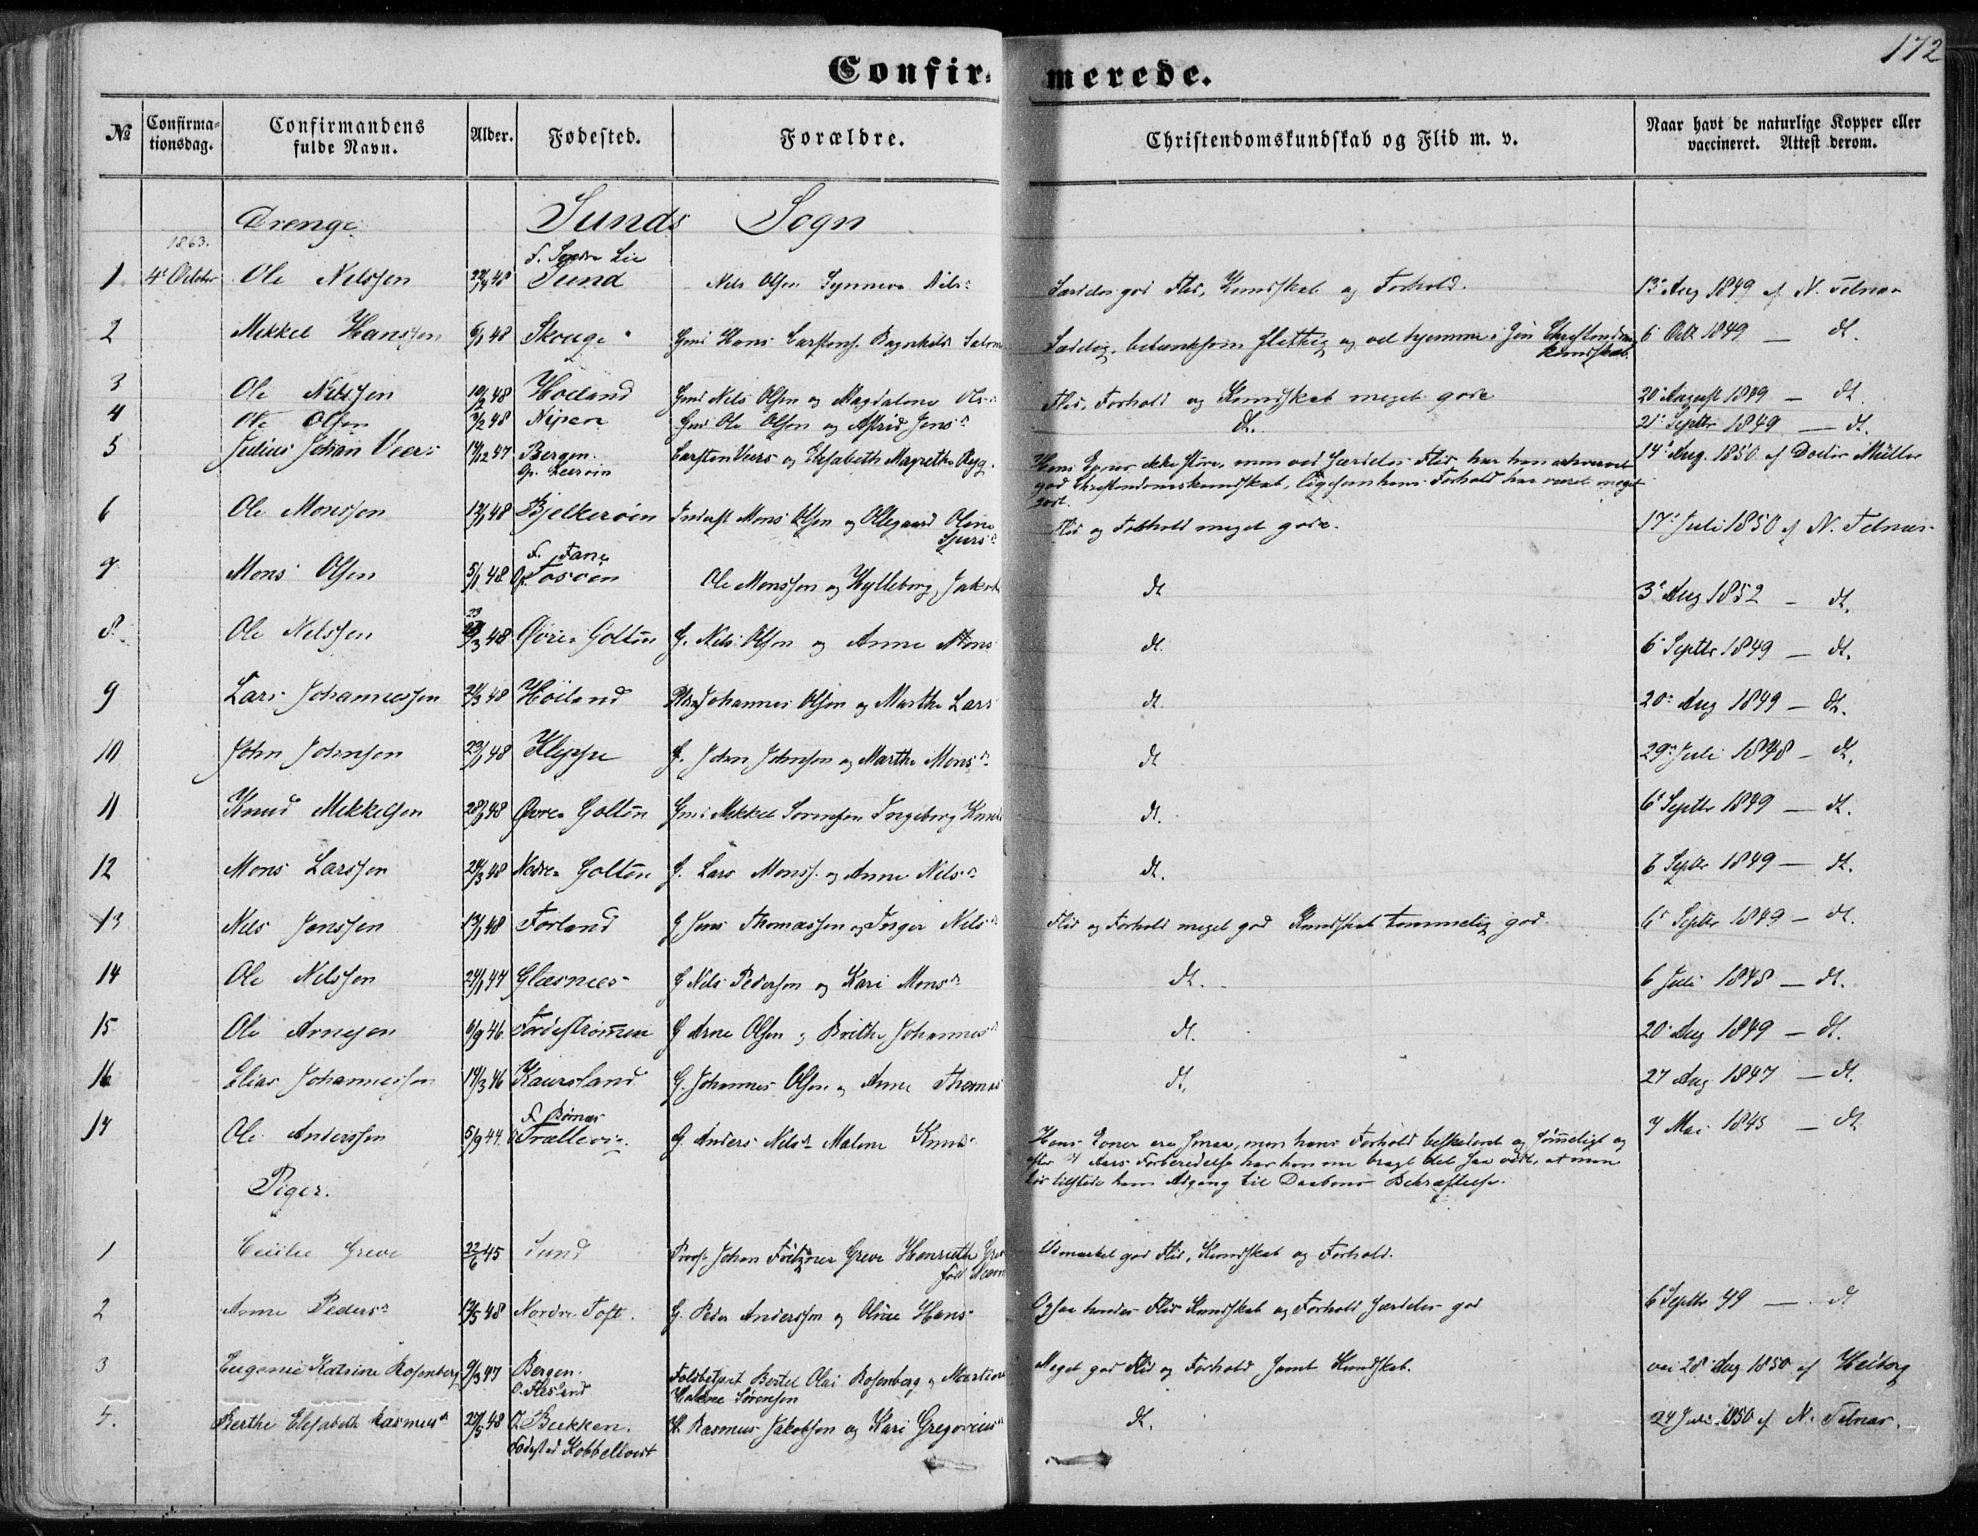 172
Confirmerede.
No Confirmationsdag. Confirmandens fulde Navn. Alder. Fødested. Forældre. Christendomskundskab og Flid m. v. Naar havt de naturlige Kopper eller vaccineret. Attest derom.
Drenge Sunds Sogn
1863.
1 4de October Ole Nilssen 48 Sund Nils Olsen Synneva Nils Særdeles god Flid, Kundskab og Forhold. 13 Aug 1849 af N. Telnæs
2 Mikkel Hanssen 6/1 48 Skouge Gmd Hans Carstens. Ragnhild 6 Octr 1849 — dt.
Kundskab.
3 Ole Nilssen 10/2 48 Høiland Gmd Nils Olsen og Magdalene Ols Flid, Forhold og Kundskab meget gode 20 August 1849 — dt.
4 Ole Olsen 2/2 48 Nipen Gmd Ole Olsen og Astrid Jens dt. 21 Septbr 1849 — dt.
5 Julius Johan Veers 14/12 47 Bergen. Carsten Veers og Elisabeth Magrethe 14 Aug. 1850 af Doctor Müller
Hans Evner ikke store, men ved særdeles Flid har han erhvervet
god Christendomskundskab, ligesom hans Forhold har været meget
godt.
6 Ole Monssen 13/1 48 Bjelkerøen Inderst Mons Olsen og Ollegaard Oline Sjurs Flid og Forhold meget gode. 17 Juli 1850 af N. Telnæs
F. Fane
7 Mons Olsen 5/1 48 Tosøen Ole Monssen og Hylleborg Jakobs dt 3 Aug 1852 — dt.
8. Ole Nilssen 23/3 48 Øvre Golten G. Nils Olsen og Anne Mons dt. 6 Septbr 1849 — dt.
9 Lars Johannessen 21/3 48 Høiland Johannes Olsen og Marthe Lars dt. 20 Aug 1849 — dt.
10 John Johnsen 23/1 48 Kleppe G. John Johnsen og Marthe Mons dt 29 Juli 1848 — dt.
11 Knud Mikkelsen 28/1 48 Øvre Golten Gmd Mikkel Sørensen Ingeborg Knuds dt. 6 Septbr 1849 — dt.
12 Mons Larssen 24/3 48 Nedre Golten G. Lars Monss. og Anne Nils dt. 6 Septbr 1849 — dt.
13 Nils Jenssen 13/1 48 Forland G Jens Thomassen og Inger Nils Flid og Forhold meget god Kundskab temmelig god 6 Septbr 1849 — dt.
14 Ole Nilssen 24/1 47 Glæsnes G Nils Pederssen og Kari Mons dt. 6 Juli 1848 — dt.
15 Ole Arnesen 6/9 46 Førdestrømmen G Arne Olsen og Brithe Johannes dt. 20 Aug 1849 — dt.
16 Elias Johannessen 14/3 46 Kaursland G. Johannes Olsen og Anne Thomas dt. 27 Aug 1847 — dt.
17 Ole Anderssen 5/9 44. Trællevig G. Anders Nils. Malene Knuds 7 Mai 1845 — dt
Hans Evner ere smaa, men hans Forhold beskedent og sømmeligt og
efter Aars Forberedelse har han nu bragt det saa vidt, at man
tør tilstede ham Adgang til Daabens Bekræftelse.
Piger.
1 Cecilie Greve 22/6 45 Sund Provst Johan Greve Henriette Greve Udmærket god Flid, Kundskab og Forhold.
født
2 Anne Peders 13/5 48 Nordre Toft. G. Peder Anderssen og Oline Hans Ogsaa hendes Flid Kundskab og Forhold særdeles god 6 Septbr 49 — dt
3 Eugenie Katrine Rosenberg 9/3 47 Bergen. Toldbetjent Bertel Olai Rosenberg og Martine Malene Sørensen Meget god Flid og Forhold samt Kundskab. 28 Aug 1850 af Heiberg
O. Flesland
4. Berthe Elisabeth Rasmusd 27/5 48 O. Bukken. H. Rasmus Jakobsen og Kari Gregorius dt. 24 Juli 1850 af N. Telnæs.
Fødested Kobbeltvedt